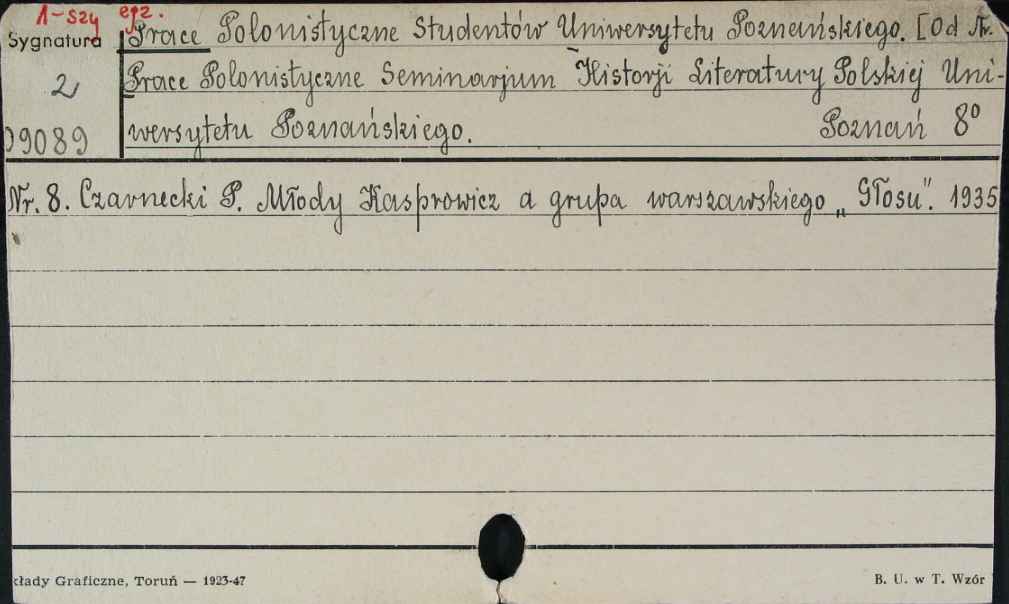 1-szy egz.
Sygnatura
2
09089
Prace Polonistyczne Studentów Uniwersytetu Poznańskiego. [Od Nr.
Prace Polonistyczne Seminarjum Historji Literatury Polskiej Uni-
wersytetu Poznańskiego. Poznań 8°
Nr. 8. Czarnecki P. Młody Kasprowicz a grupa warszawskiego „Głosu". 1935
kłady Graficzne, Toruń — 1923-47
B. U. w T. Wzór